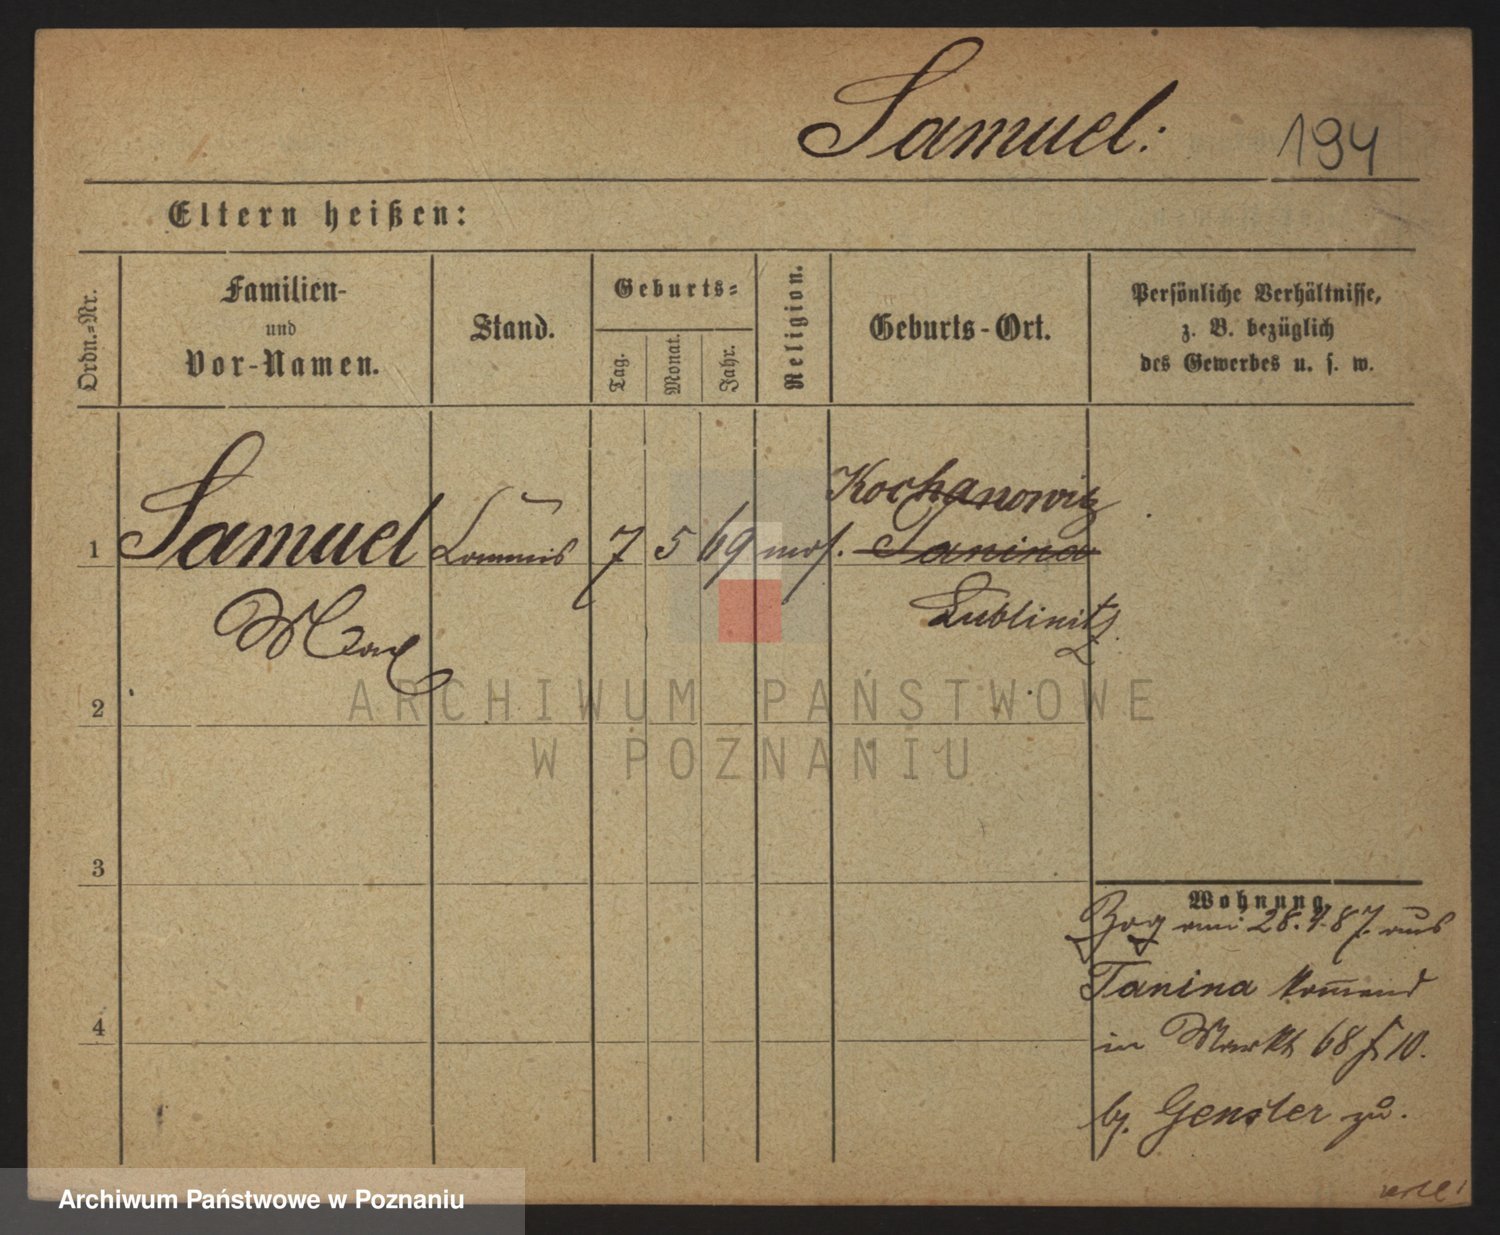 Samuel: 194
Eltern heißen:
Ordn.-Nr.
Familien-
und
Vor-Namen.
Stand.
Geburts-
Tag.
Monat.
Jahr.
Religion.
Geburts-Ort.
Persönliche Verhältnisse,
z. B. bezüglich
des Gewerbes u. s. w.
Kochanowitz
1 Samuel Commis 7 5 69 mos. Tanina
Max
Lublinitz
2
3
4
Wohnung
Zog am 28.4.87. aus
Tanina komend
in Markt 68 10.
bj. Gensler zu.
ARCHIWUM PAŃSTWOWE
W POZNANIU
Archiwum Państwowe w Poznaniu